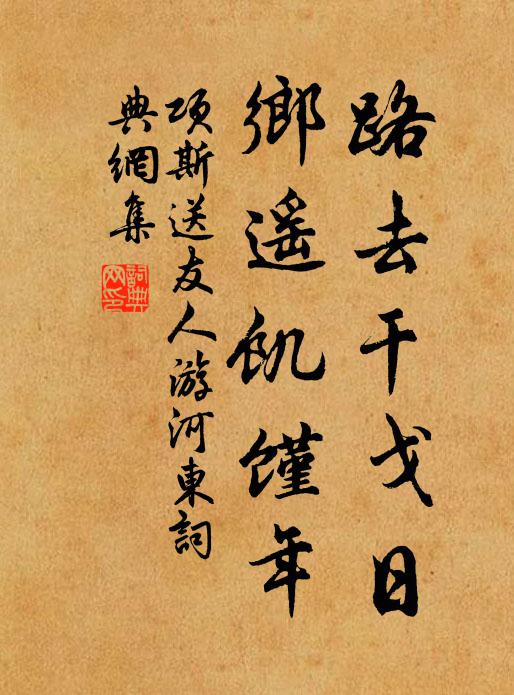 路去干戈日
鄉遥飢饉年
项斯送友人游河東詞
典網集
詞典
网印